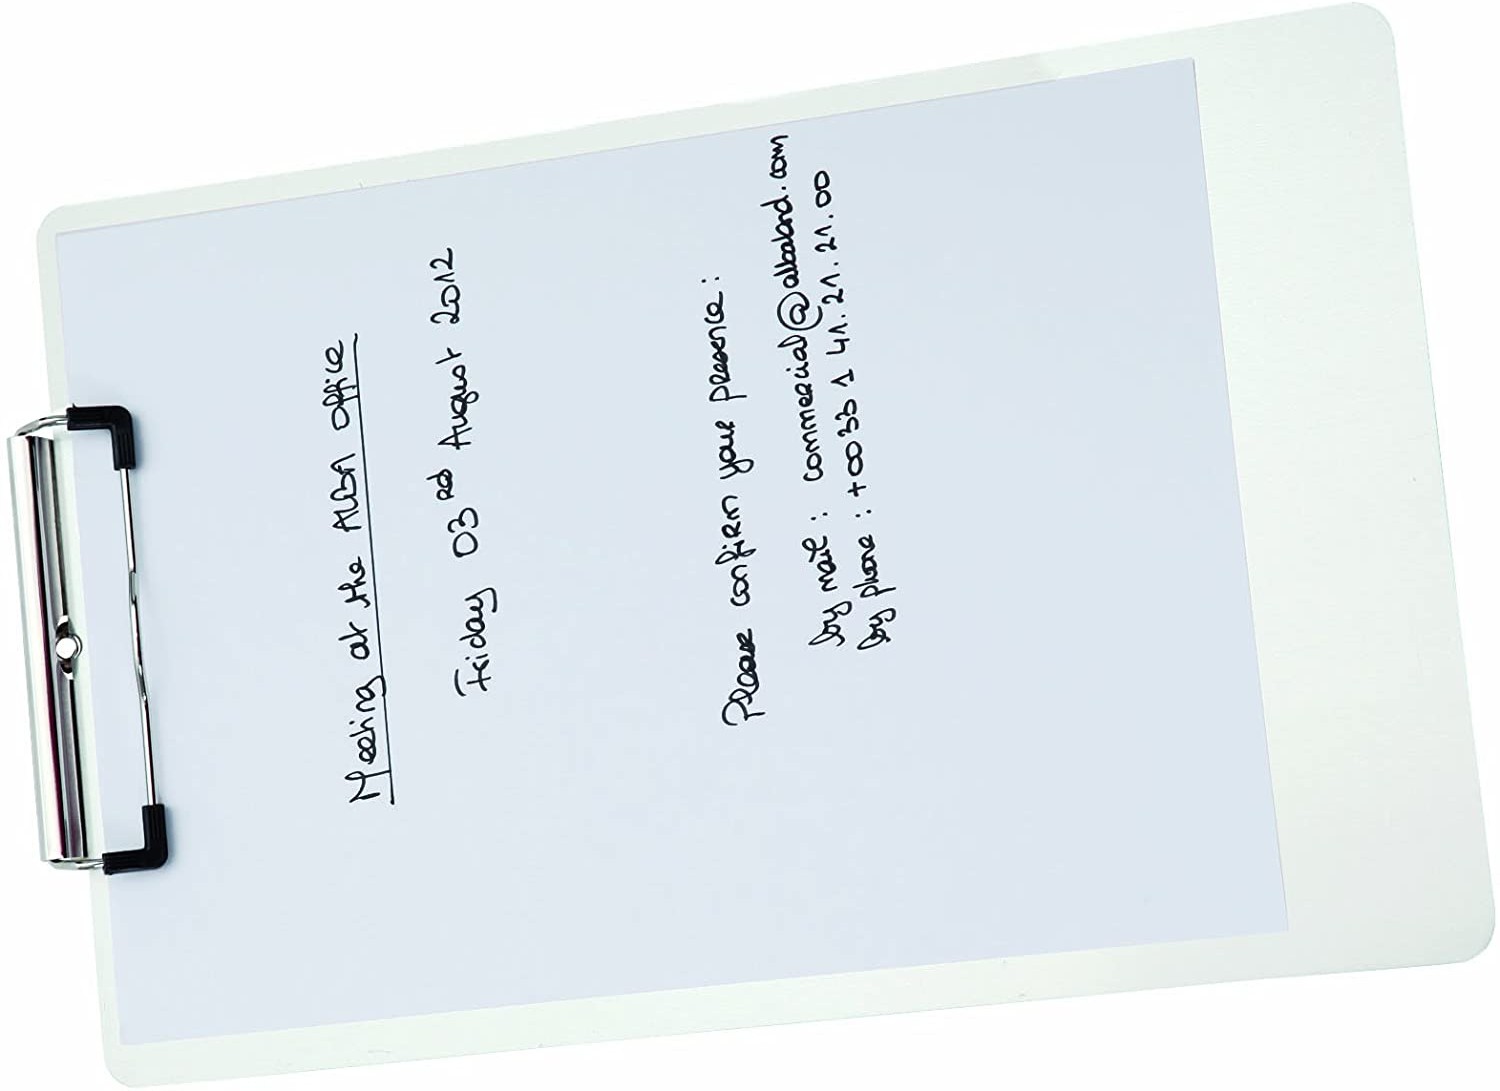 Meeting at the ALBA office
Friday 03rd August 2012
Please confirm your presence :
by mail : commercial@albabnd.com
by phone : +0033 1 41.21.21.00